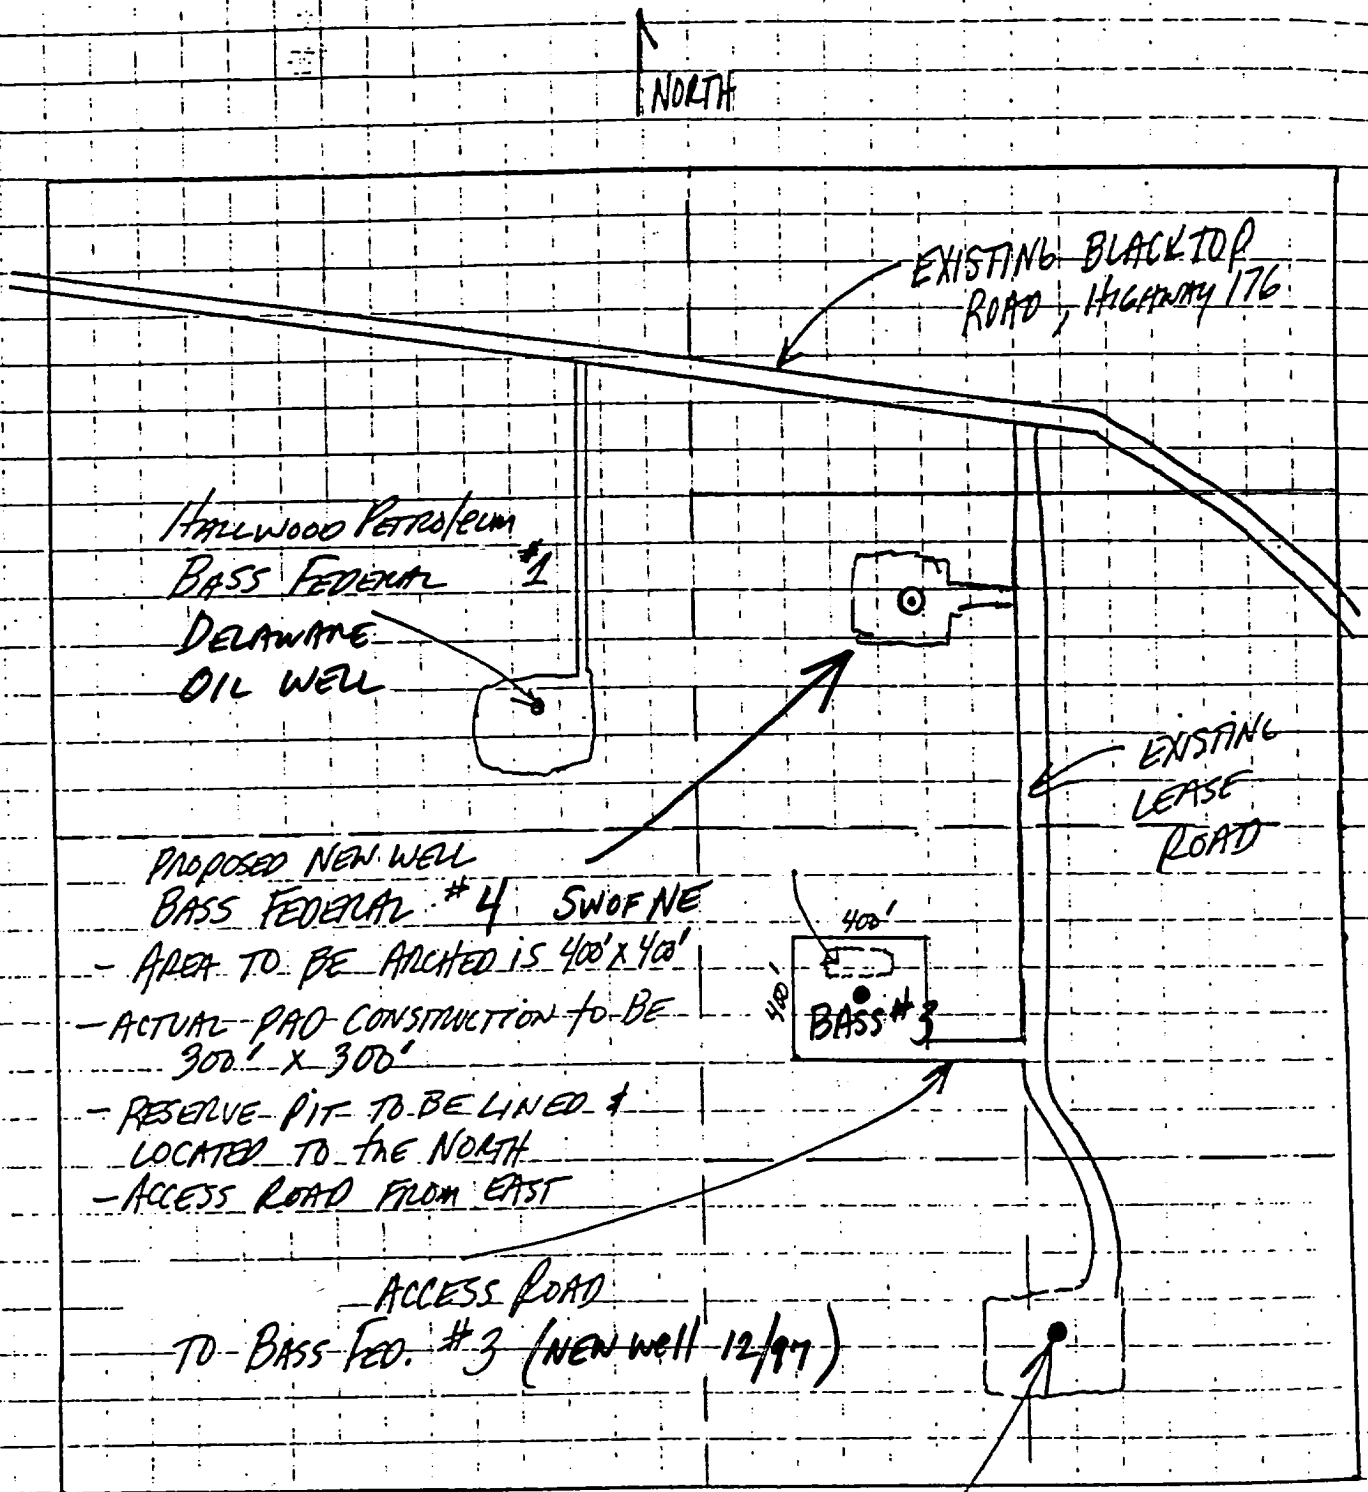 NORTH
EXISTING BLACKTOP
ROAD, HIGHWAY 176
HALLWOOD PETROleum
BASS FEDERAL #1
DELAWARE
OIL WELL
EXISTING
LEASE
ROAD
PROPOSED NEW WELL
BASS FEDERAL #4 SWOFNE
- AREA TO BE ARCHED iS 400' X 400'
- ACTUAL PAD CONSTRUCTION to BE
300' X 300'
- RESERVE PIT TO BE LINED &
LOCATED TO the NORTH
- ACCESS ROAD FROM EAST
400'
400'
BASS #3
ACCESS ROAD
TO BASS FED. #3 (NEW well 12/97)